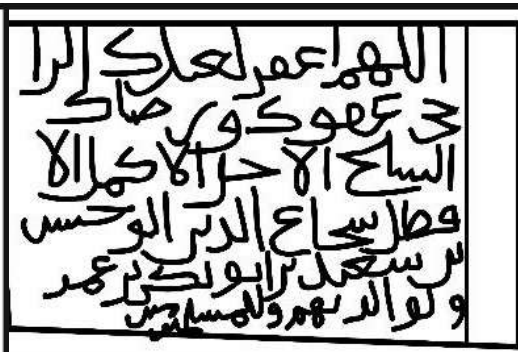 اللهم اغفر لعبدك الرا
جي عفوك ورضاك
الشيخ الاجل الاكمل الا
فضل شجاع الدين ابو
بن سعيد بن ابو بكر بن عمر
ولوالديهم وللمسلمين